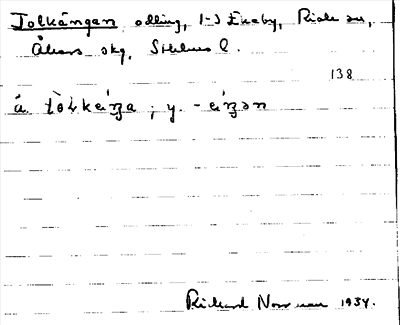 Tolkängen odling, 1-3 Ekeby, Riala sn,
Åkers skg, Sthlms l.
138
å tòlkeŋa ; y. -eŋən
Rickard Norrman 1934.